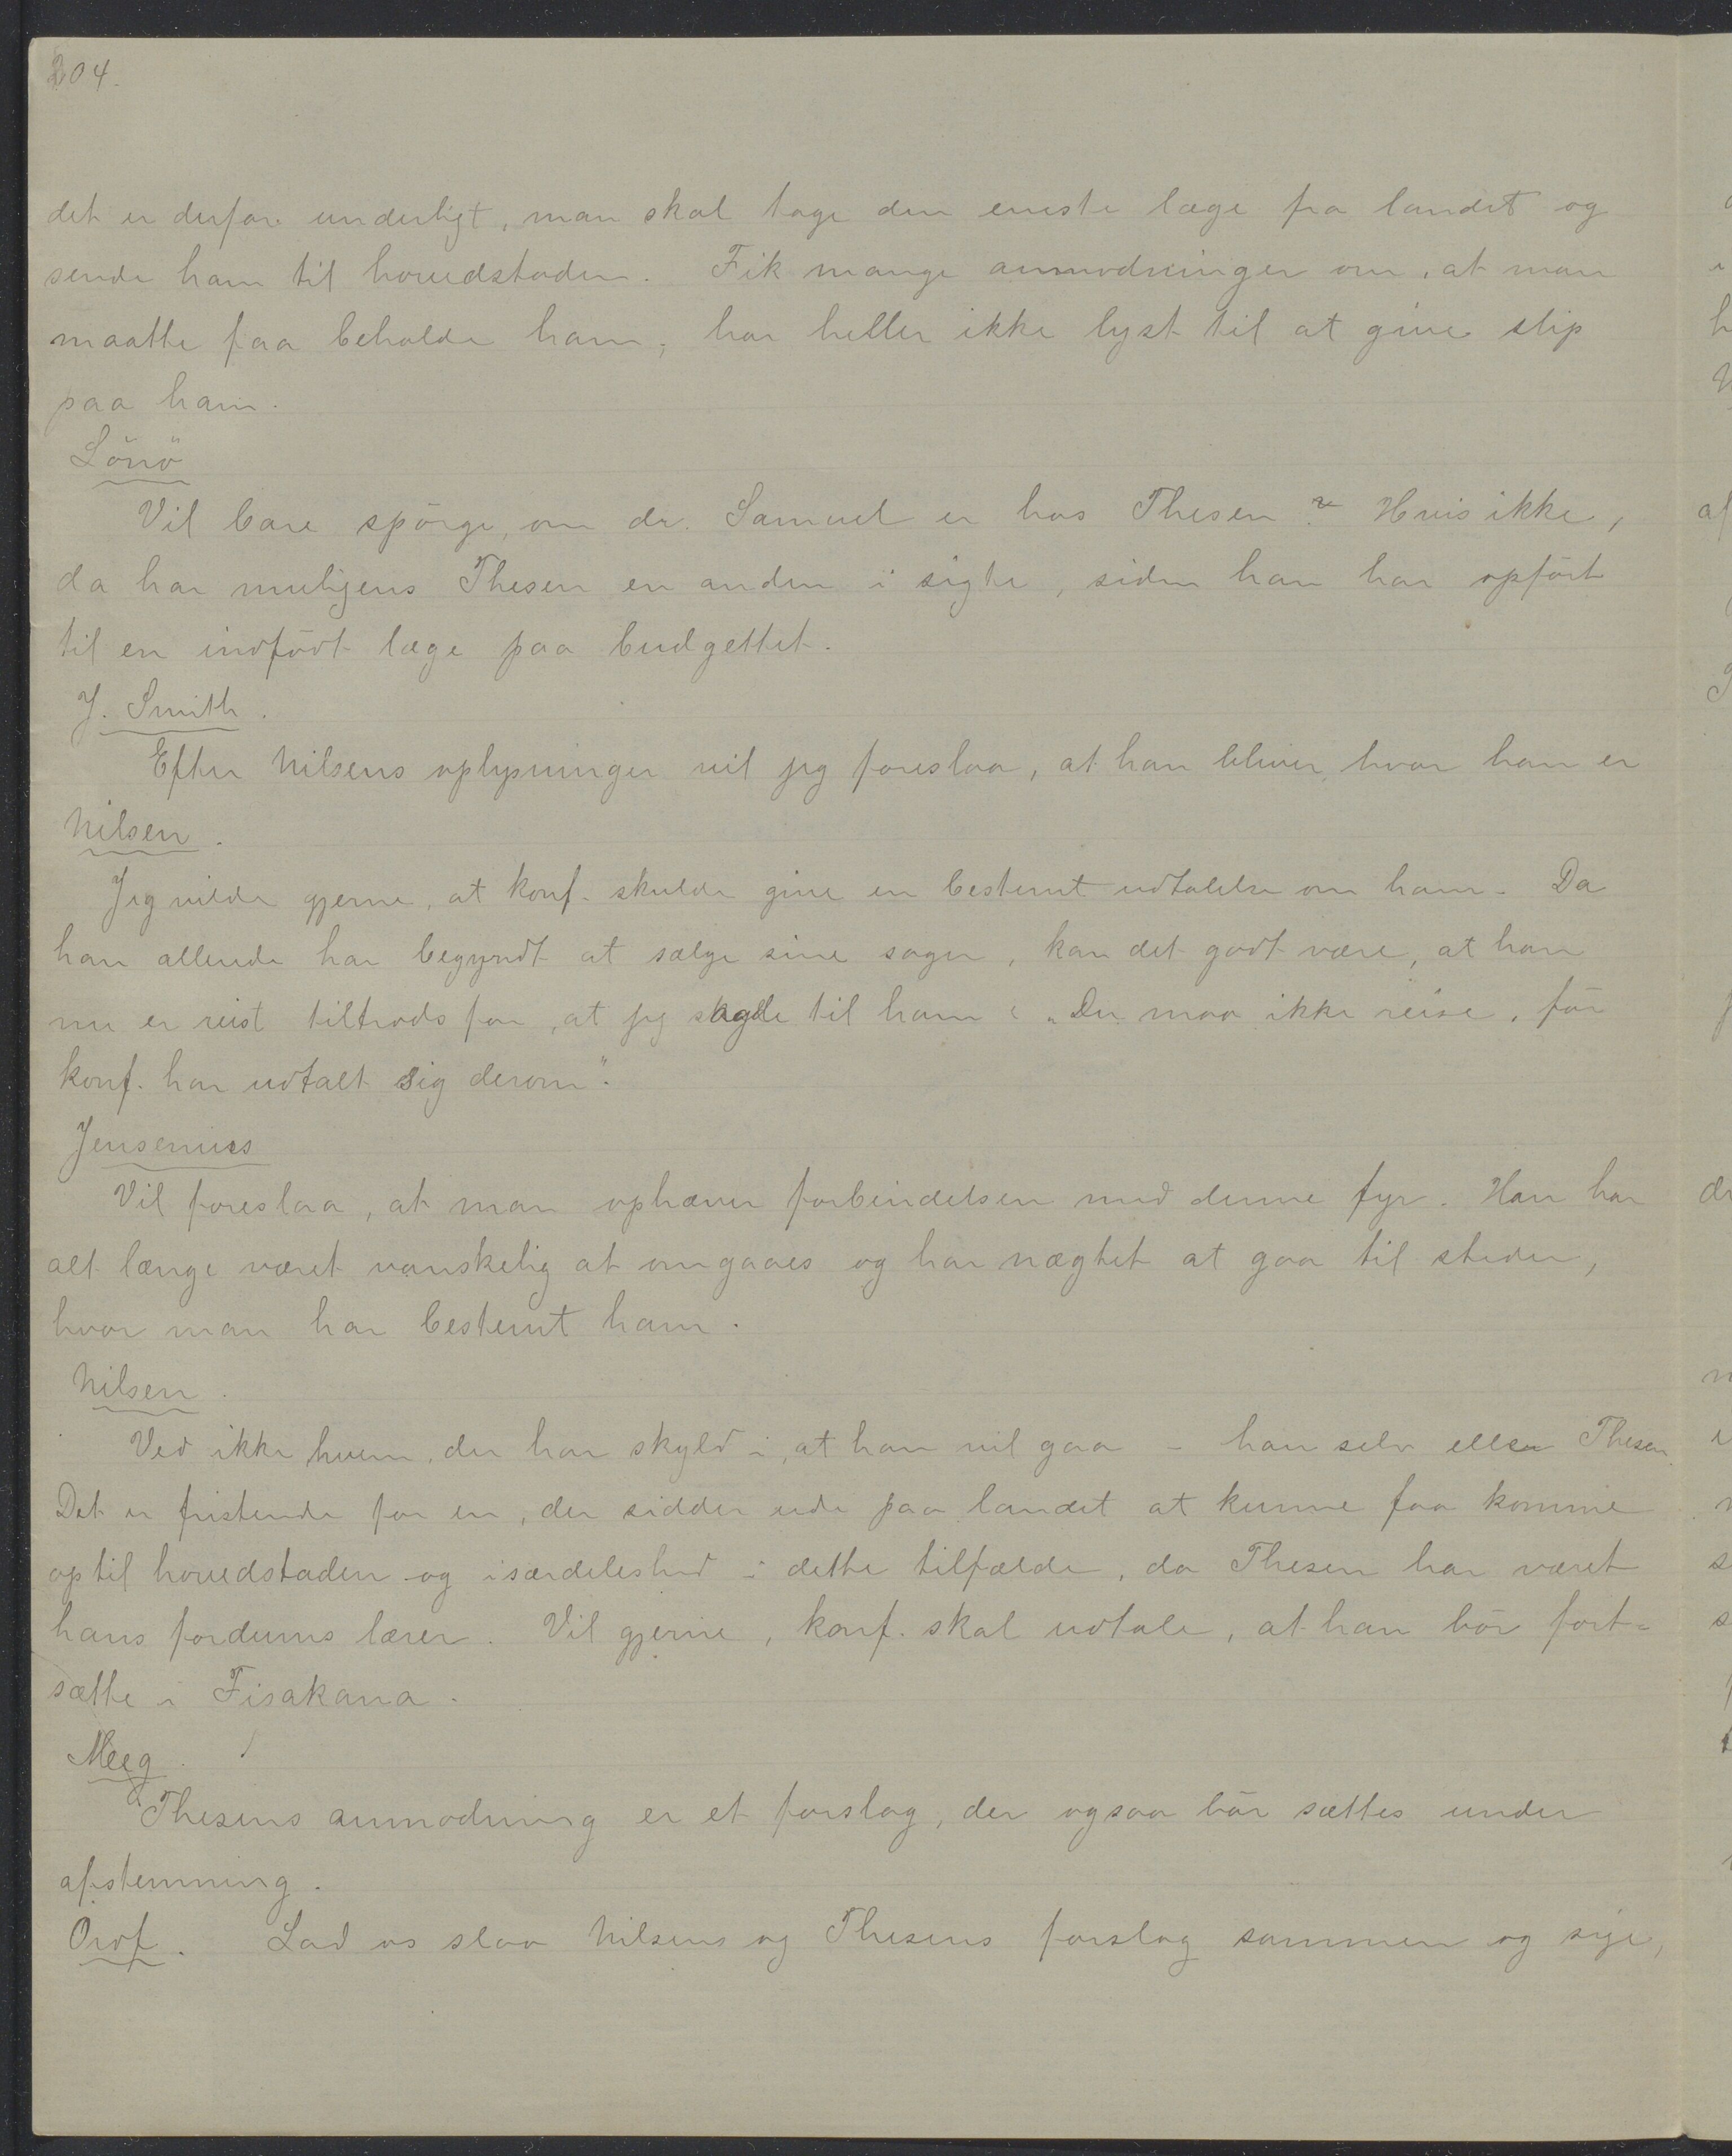 204.
det er derfor underligt, man skal tage den eneste læge fra landet og
sende ham til hovedstaden. Fik mange anmodninger om, at man
maatte faa beholde ham; har heller ikke lyst til at give slip
paa ham.
Lönö
Vil bare spörge, om dr. Samuel er hos Thesen? Hvis ikke,
da har muligens Thesen en anden i sigte, siden han har opfört
til en indfödt læge paa budgettet.
J. Smith.
Efter Nilsens oplysninger vil jeg foreslaa, at han bliver, hvor han er
Nilsen.
Jeg vilde gjerne, at konf. skulde give en bestemt udtalelse om ham. Da
han allerede har begyndt at sælge sine sager, kan det godt være, at han
nu er reist tiltrods for, at jeg sagde til ham: „Du maa ikke reise, för
konf. har udtalt sig derom".
Jensenius
Vil foreslaa, at man ophæver forbindelsen med denne fyr. Han har
alt længe været vanskelig at omgaaes og har nægtet at gaa til steder,
hvor man har bestemt ham.
Nilsen.
Ved ikke hvem, der har skyld i, at han vil gaa - han selv eller Thesen
Det er fristende for en, der sidder ude paa landet at kunne faa komme
op til hovedstaden og isærdeleshed i dette tilfælde, da Thesen har været
hans fordums lærer. Vil gjerne, konf. skal udtale, at han bör fort=
sætte i Fisakana.
Meeg.
Thesens anmodning er et forslag, der ogsaa bör sættes under
afstemning.
Ordf. Lad os slaa Nilsens og Thesens forslag sammen og sige,